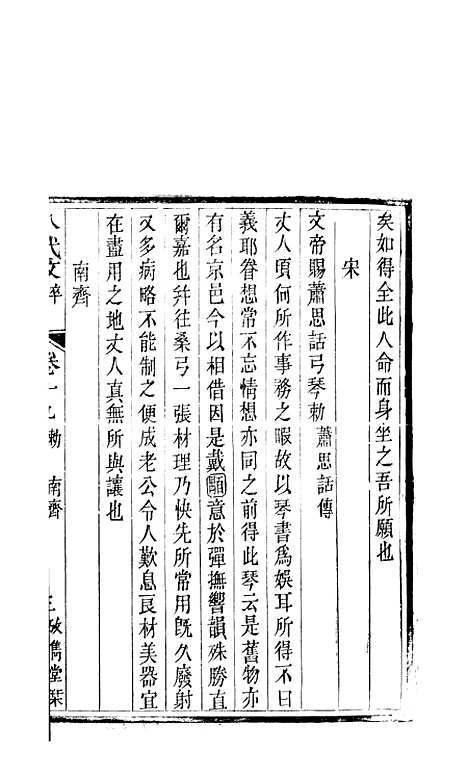 矣如得全此人命而身坐之吾所願也
宋
文帝賜蕭思話弓琴勅 蕭思話傳
丈人頃何所作事務之暇故以琴書為娛耳所得不曰
義耶眷想常不忘情想亦同之前得此琴云是舊物亦
有名京邑今以相借因是戴顒意於彈撫響韻殊勝直
爾嘉也并往桑弓一張材理乃快先所常用既久廢射
又多病略不能制之便成老公令人歎息良材美器宜
在盡用之地丈人真無所與讓也
南齊
八代文粹 卷十九 勅 南齊 三